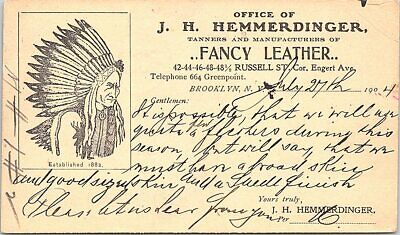 OFFICE OF
J. H. HEMMERDINGER,
TANNERS AND MANUFACTURERS OF
..FANCY LEATHER..
42-44-46-48-48½ RUSSELL ST. Cor. Engert Ave.
Telephone 664 Greenpoint.
BROOKLYN, N. Y. July 27th 1904
Gentlemen:
It is possible, that we will use
quite a few fleshers during this
season, but will say that we
must have a broad skin
and good sized skin, and a suede finish
Please let us hear from you
Established 1882.
Yours truly,
J. H. HEMMERDINGER.
per